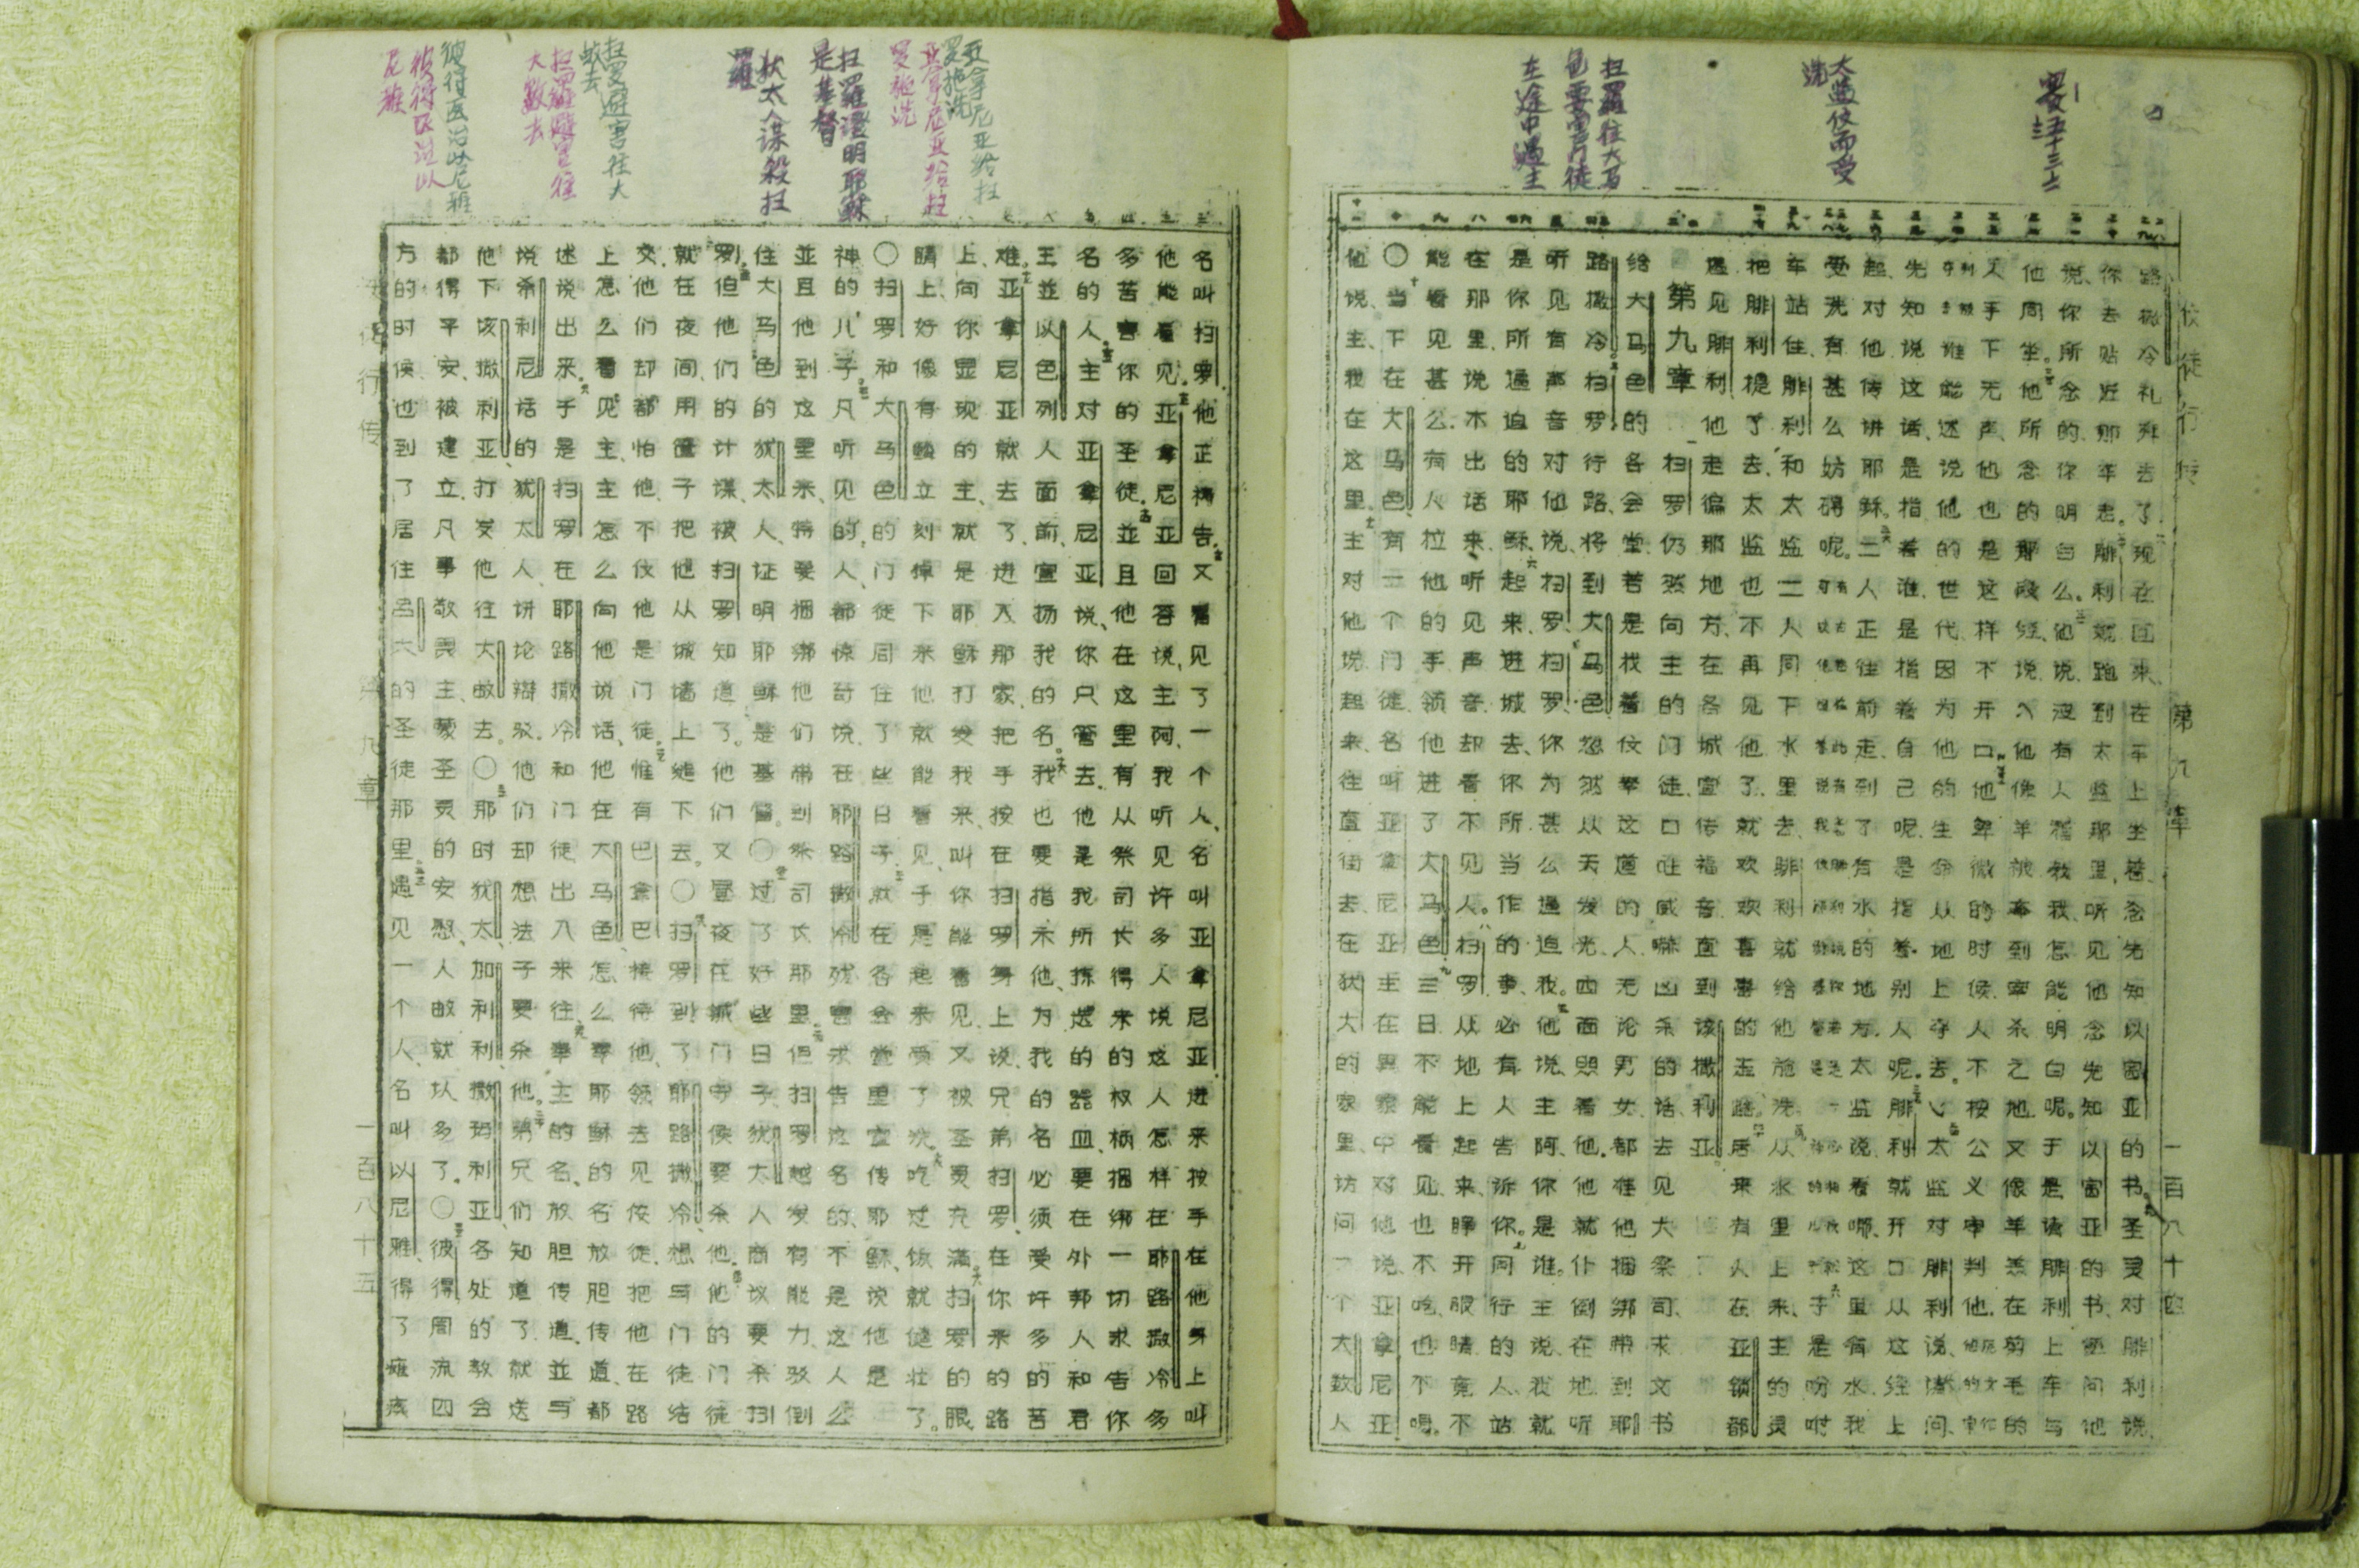 㩦太监信而受
洗
扫羅往大马
色要害门徒
在途中遇主
使徒行传 第九章 一百八十四
路撒冷礼拜去了、现在回来、在车上坐着、念先知以赛亚的书.圣灵对腓利说、
你去贴近那车走.腓利就跑到太监那里、听见他念先知以赛亚的书、便问他
说、你所念的、你明白么.他说、没有人指教我、我怎能明白呢.于是请腓利上车与
他周坐.他所念的那段经、说、他像羊被牵到宰杀之地、又像羊羔在剪毛的
人手下无声、他也是这样不开口.他卑微的时候、人不按公义审判他
谁能述说他的世代、因为他的生命从地上夺去.太监对腓利说、请问、
先知说这话、是指着谁、是指着自己呢、是指着别人呢.腓利就开口从这经上
起、对他传讲耶稣.二人正往前走、到了有水的地方、太监说、看哪、这里有水、我
受洗有甚么妨碍呢.于是吩咐
车站住、腓利和太监二人周下水里去、腓利就给他施洗.从水里上来、主的灵
把腓利提了去、太监也不再见他了、就欢欢喜喜的走路.后来有人在亚锁都
遇见腓利他走遍那地方、在各城宣传福音、直到该撒利亚.
第九章
扫罗仍然向主的门徒、口吐威嚇凶杀的话、去见大祭司、求文书
给大马色的各会堂、若是找着信奉这道的人、无论男女、都准他捆绑带到耶
路撒冷.扫罗行路、将到大马色、忽然从天发光、四面照着他.他就仆倒在地、听
听见有声音对他说、扫罗、扫罗、你为甚么逼迫我.他说、主阿、你是谁.主说、我就
是你所逼迫的耶稣.起来、进城去、你所当作的事、必有人告诉你.同行的人、站
在那里、说不出话来、听见声音、却看不见人.扫罗从地上起来、睁开眼睛、竟不
能看见甚么.有人拉他的手、领他进了大马色.三日不能看见、也不吃、也不喝.
○当下在大马色、有一个门徒、名叫亚拿尼亚.主在异象中对他说、亚拿尼亚
他说、主、我在这里.主对他说、起来、往直街去、在犹大的家里、访问一个大数人
亚拿尼亚给扫
罗施洗
亚拿尼亚给扫
罗施洗
扫羅證明耶穌
是基督
犹太人谋殺扫
羅
扫罗避害往大
数去
扫羅避害往
大數去
彼得医治以尼雅
彼得医治以
尼雅
名叫扫罗.他正祷告.又看见了一个人、名叫亚拿尼亚.进来按手在他身上叫
他能看见.亚拿尼亚回答说、主阿、我听见许多人说这人怎样在耶路撒冷多
多苦害你的圣徒.並且他在这里有从祭司长得来的权柄捆绑一切求告你
名的人.主对亚拿尼亚说、你只管去.他是我所拣选的器皿、要在外邦人和君
王並以色列人面前、宣扬我的名.我也要指示他、为我的名必须受许多的苦
难.亚拿尼亚就去了、进入那家、把手按在扫罗身上说、兄弟扫罗、在你来的路
上、向你显现的主、就是耶稣、打发我来、叫你能看见、又被圣灵充满.扫罗的眼
睛上、好像有鳞立刻掉下来、他就能看见、于是起来受了洗.吃过饭就健壮了.
○扫罗和大马色的门徒周住了些日子.就在各会堂里宣传耶稣、说他是
神的儿子.凡听见的人、都惊奇说、在耶路撒冷残害求告这名的、不是这人么
亚且他到这里来、特要捆绑他们带到祭司长那里.但扫罗越发有能力、驳倒
住大马色的犹太人、证明耶稣是基督.○过了好些日子、犹太人商议要杀扫
罗.但他们的计谋、被扫罗知道了.他们又昼夜在城门守候要杀他.他的门徒
就在夜间、用筐子把他从城墙上缒下去.○扫罗到了耶路撒冷、想与门徒结
交、他们却都怕他、不信他是门徒.惟有巴拿巴接待他、领去见使徒、把他在路
上怎么看见主、主怎么向他说话、他在大马色、怎么奉耶稣的名放胆传道、都
述说出来.于是扫罗在耶路撒冷和门徒出入来往.奉主的名、放胆传道、並与
说希利尼话的犹太人、讲论辩驳.他们却想法子要杀他.弟兄们知道了、就送
他下该撒利亚、打发他往大数去.○那时犹太、加利利、撒玛利亚、各处的教会
都得平安、被建立、凡事敬畏主、蒙圣灵的安慰、人数就加多了.○彼得周流四
方的时候、也到了居住吕大的圣徒那里.遇见一个人、名叫以尼雅、得了瘫痪
使行传 第九章 一百八十五